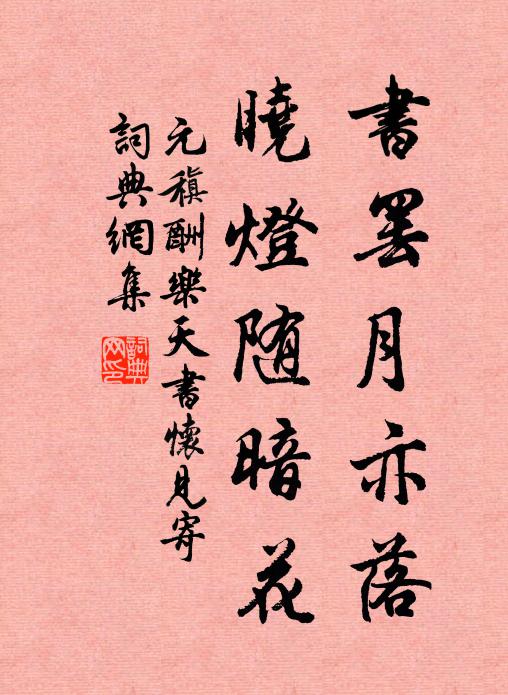 書罷月亦落
曉燈随暗花
元稹酬樂天書懷見寄
詞典網集
詞典網印